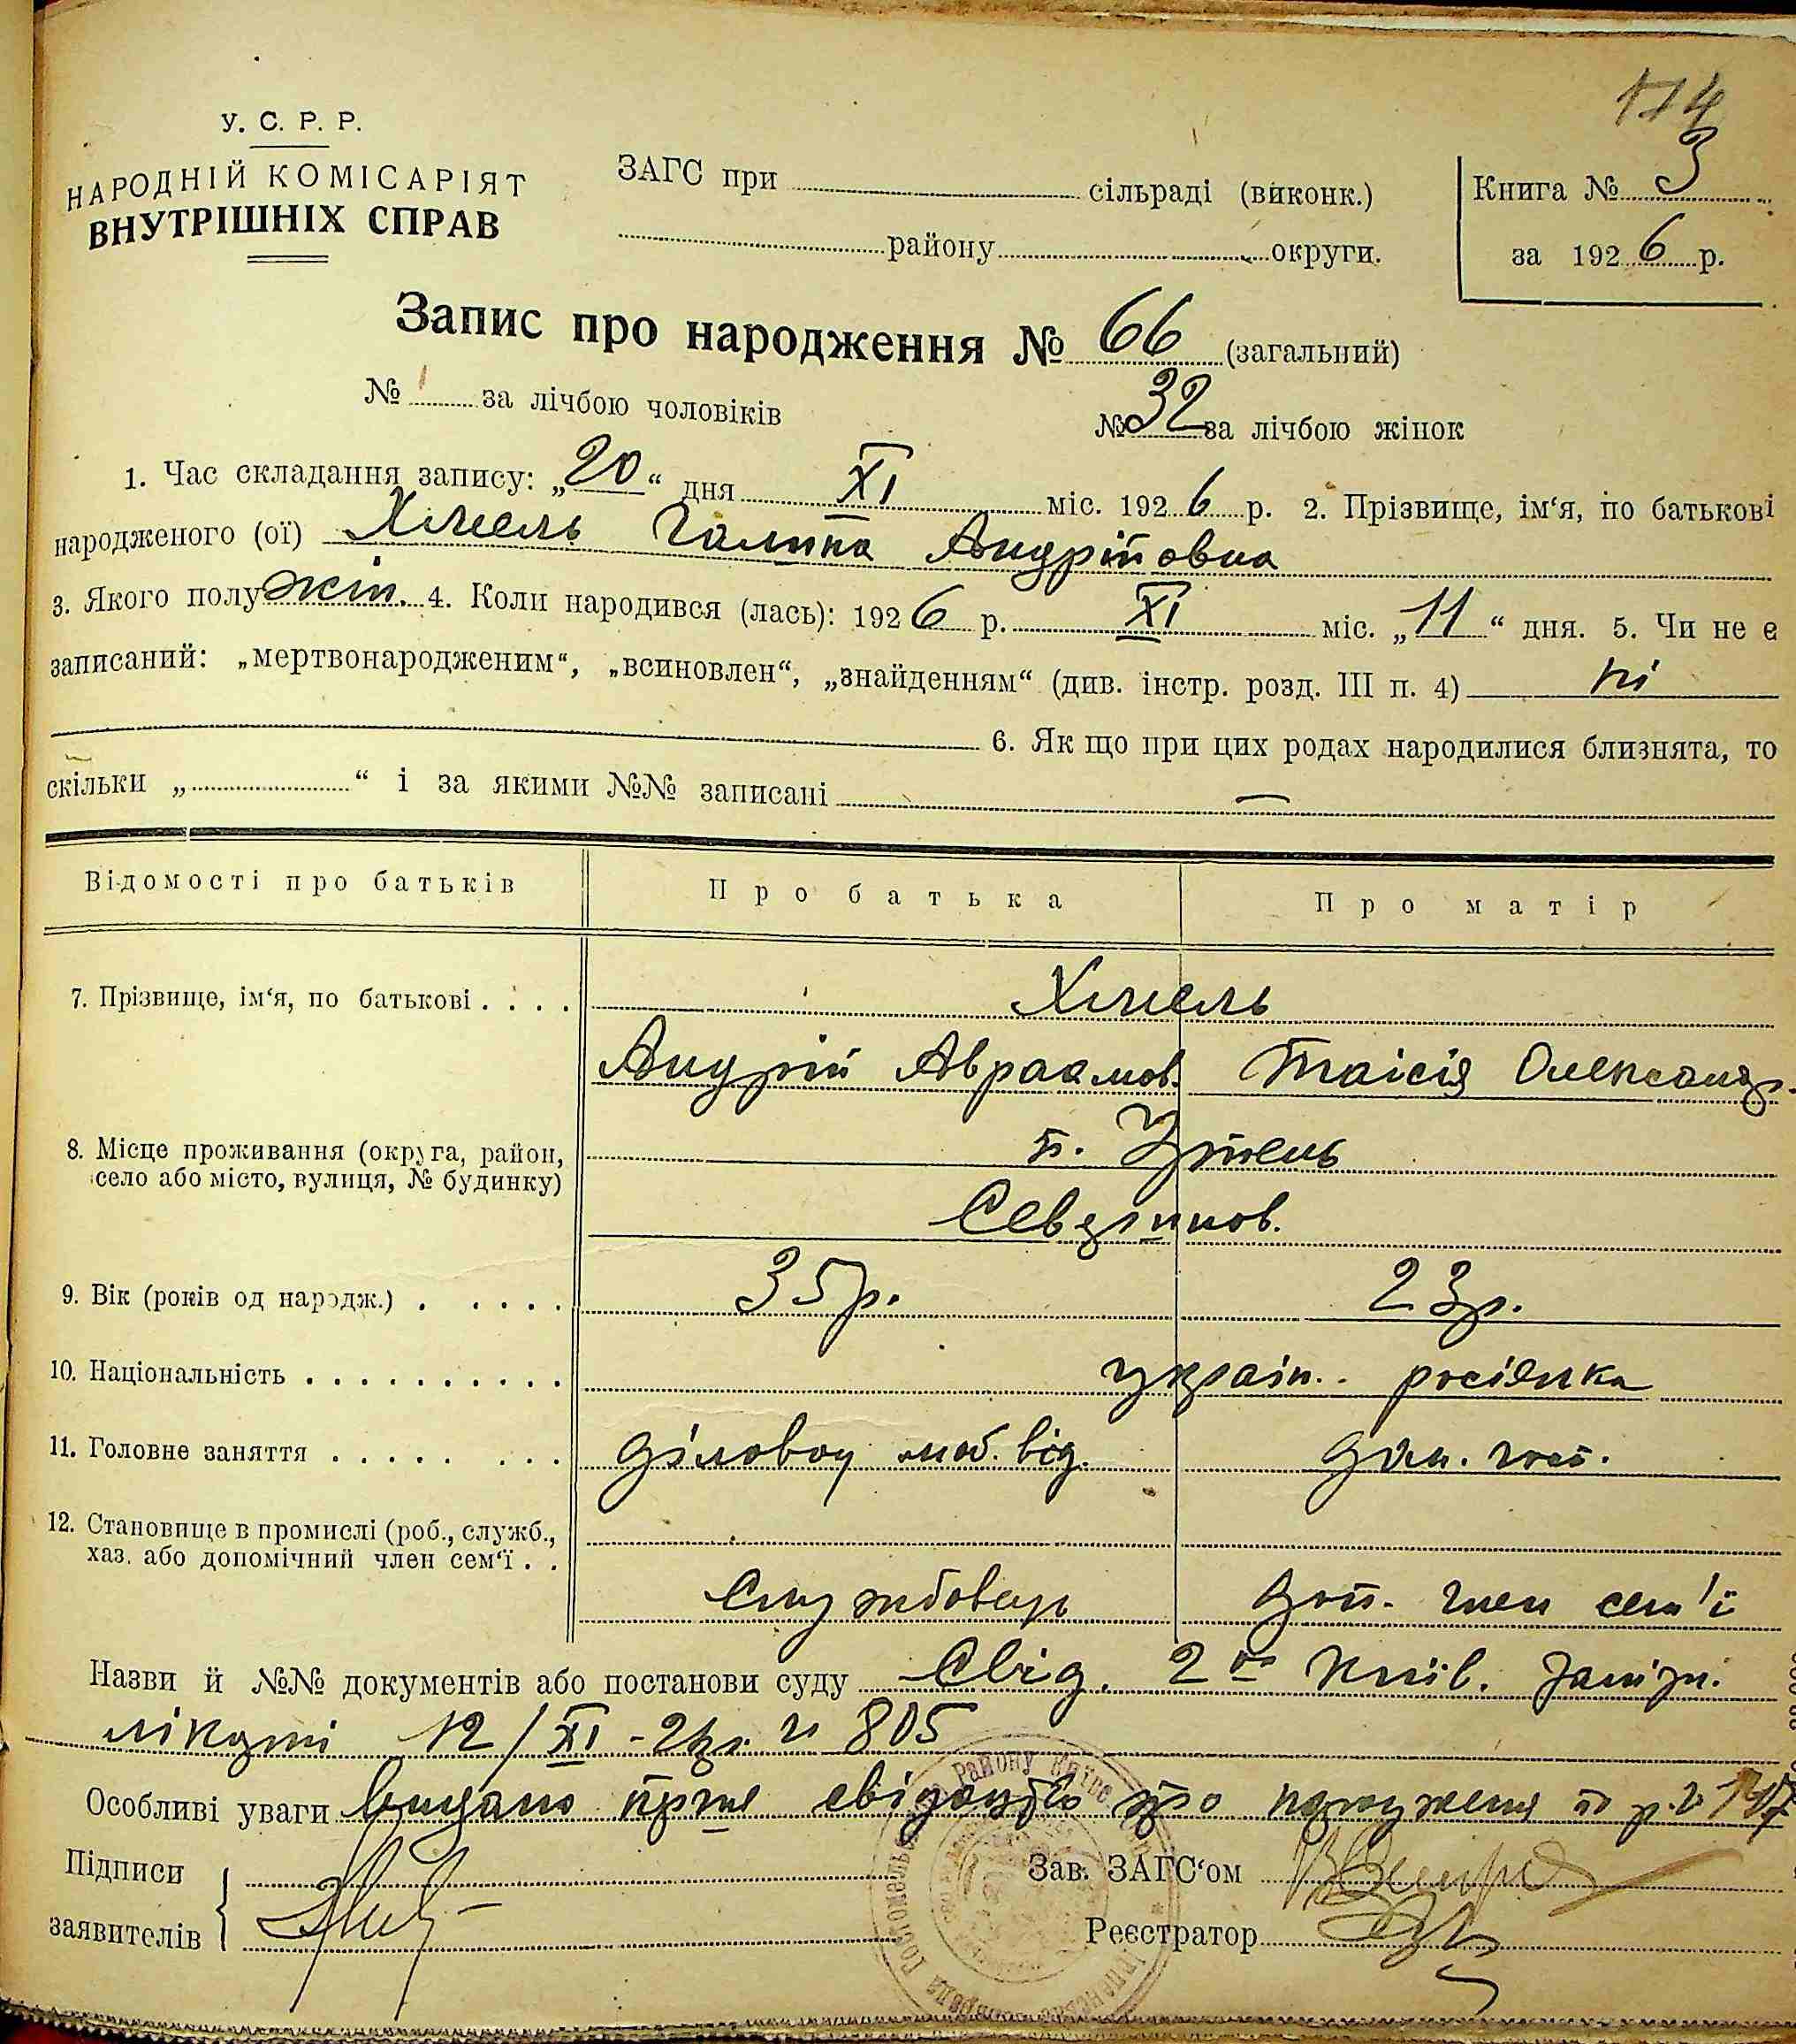 114
У. С. Р. Р.
НАРОДНІЙ КОМІСАРІЯТ
ВНУТРІШНІХ СПРАВ
ЗАГС при сільраді (виконк.)
району округи.
Книга № 3
за 1926 р.
Запис про народження № 66 (загальний)
№ за лічбою чоловіків № 32 за лічбою жінок
1. Час складання запису: „20“ дня XI міс. 1926 р. 2. Прізвище, ім‘я, по батькові
народженого (ої) Хмель Галина Андрійовна
3. Якого полу жін. 4. Коли народився (лась): 1926 р. XI міс. „11“ дня. 5. Чи не є
записаний: „мертвонародженим“, „всиновлен“, „знайденням“ (див. інстр. розд. III п. 4) ні
6. Як що при цих родах народилися близнята, то
скільки „ “ і за якими №№ записані —
Відомості про батьків Про батька Про матір
7. Прізвище, ім‘я, по батькові . . . . Хмель
Андрій Авраамов. Таісія Олександр.
8. Місце проживання (округа, район, п. Ірпень
село або місто, вулиця, № будинку)
9. Вік (років од народж.) . . . . . 35 р. 23 р.
10. Національність . . . . . . . . . . україн. росіянка
11. Головне заняття . . . . . . . . діловод від. дом. госп.
12. Становище в промислі (роб., служб.,
хаз. або допомічний член сем‘ї . .
Службовець доп. член сем'ї
Назви й №№ документів або постанови суду Свід. 2ої Київ. Залізн.
лікарні 12/XI-26р. № 805
Особливі уваги Видано перше свідоцтво про народження
Підписи
заявителів
Зав. ЗАГС‘ом
Реєстратор